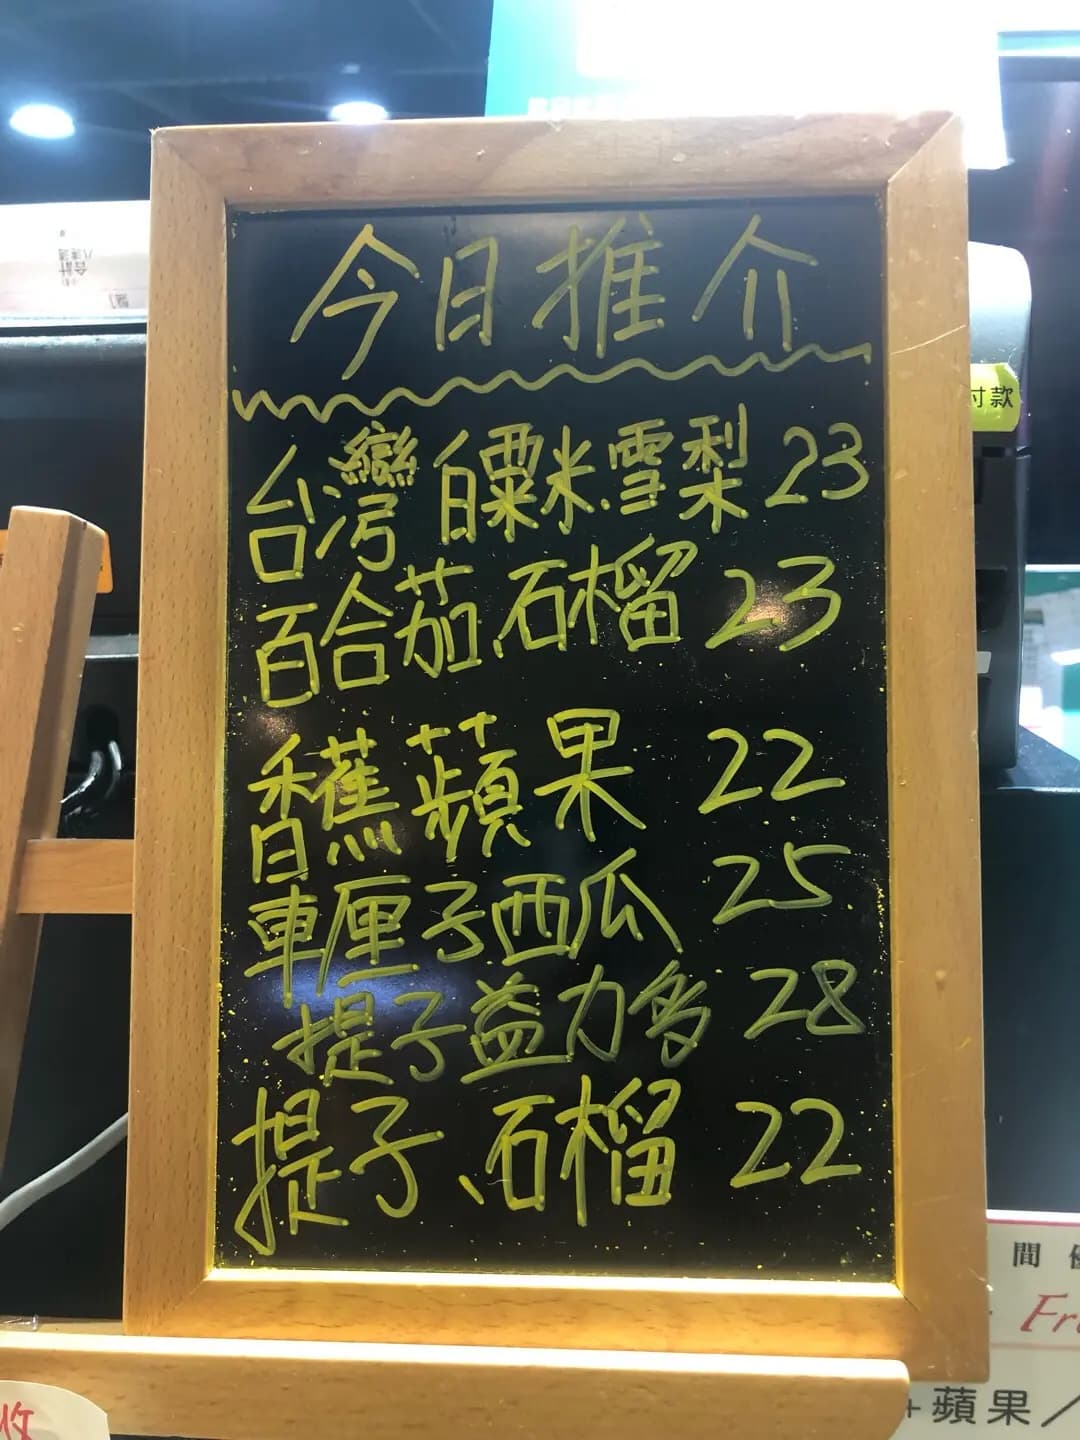 今日推介
台灣白粟米.雪梨 23
百合茄.石榴 23
香蕉蘋果 22
車厘子西瓜 25
提子益力多 28
提子、石榴 22
付款
間
Fr
+蘋果/
收